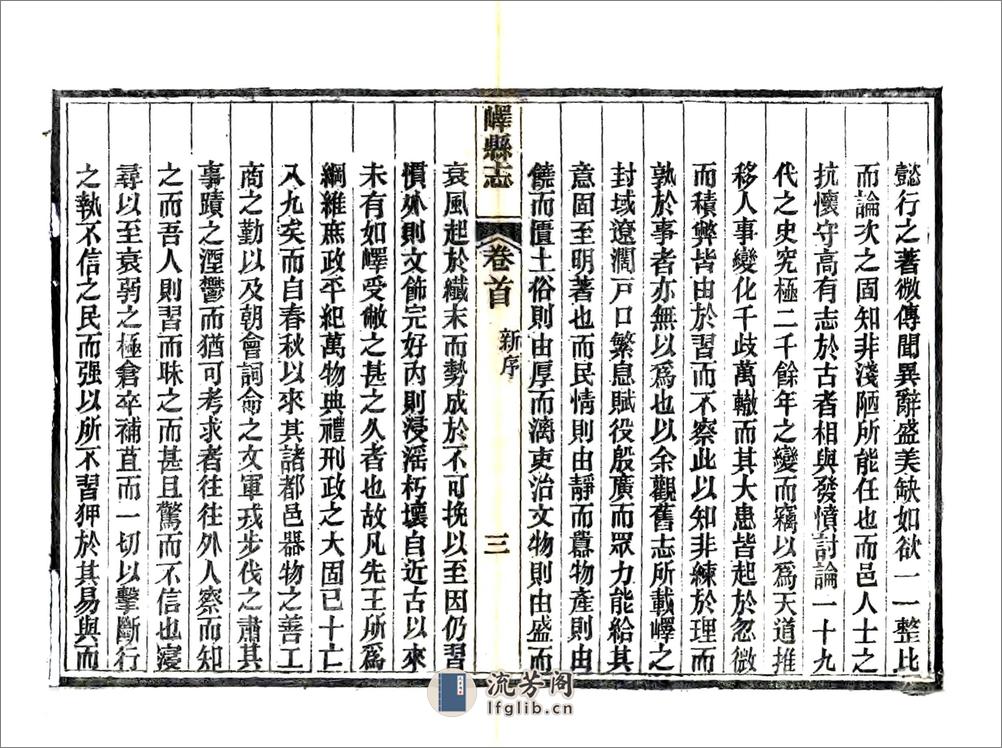 懿行之著微傳聞異辭盛美缺如欲一一整比
而論次之固知非淺陋所能任也而邑人士之
抗懷守高有志於古者相與發憤討論一十九
代之史究極二千餘年之變而竊以爲天道推
移人事變化千歧萬轍而其大患皆起於忽微
而積弊皆由於習而不察此以知非練於理而
孰於事者亦無以爲也以余觀舊志所載嶧之
封域遼濶戸口繁息賦役殷廣而眾力能給其
意固至明著也而民情則由靜而囂物產則由
饒而匱土俗則由厚而漓吏治文物則由盛而
嶧縣志
卷首
新序
三
衰風起於纖末而勢成於不可挽以至因仍習
慣外則文飾完好内則浸滛朽壞自近古以來
未有如嶧受敝之甚之久者也故凡先王所爲
綱維庶政平紀萬物典禮刑政之大固已十亡
八九矣而自春秋以來其諸都邑器物之善工
商之勤以及朝會詞命之文軍戎步伐之肅其
事蹟之湮鬱而猶可考求者往往外人察而知
之而吾人則習而昧之而甚且驚而不信也寖
尋以至衰弱之極倉卒補苴而一切以擊斷行
之執不信之民而强以所不習狎於其易與而
流芳阁
lfglib.cn